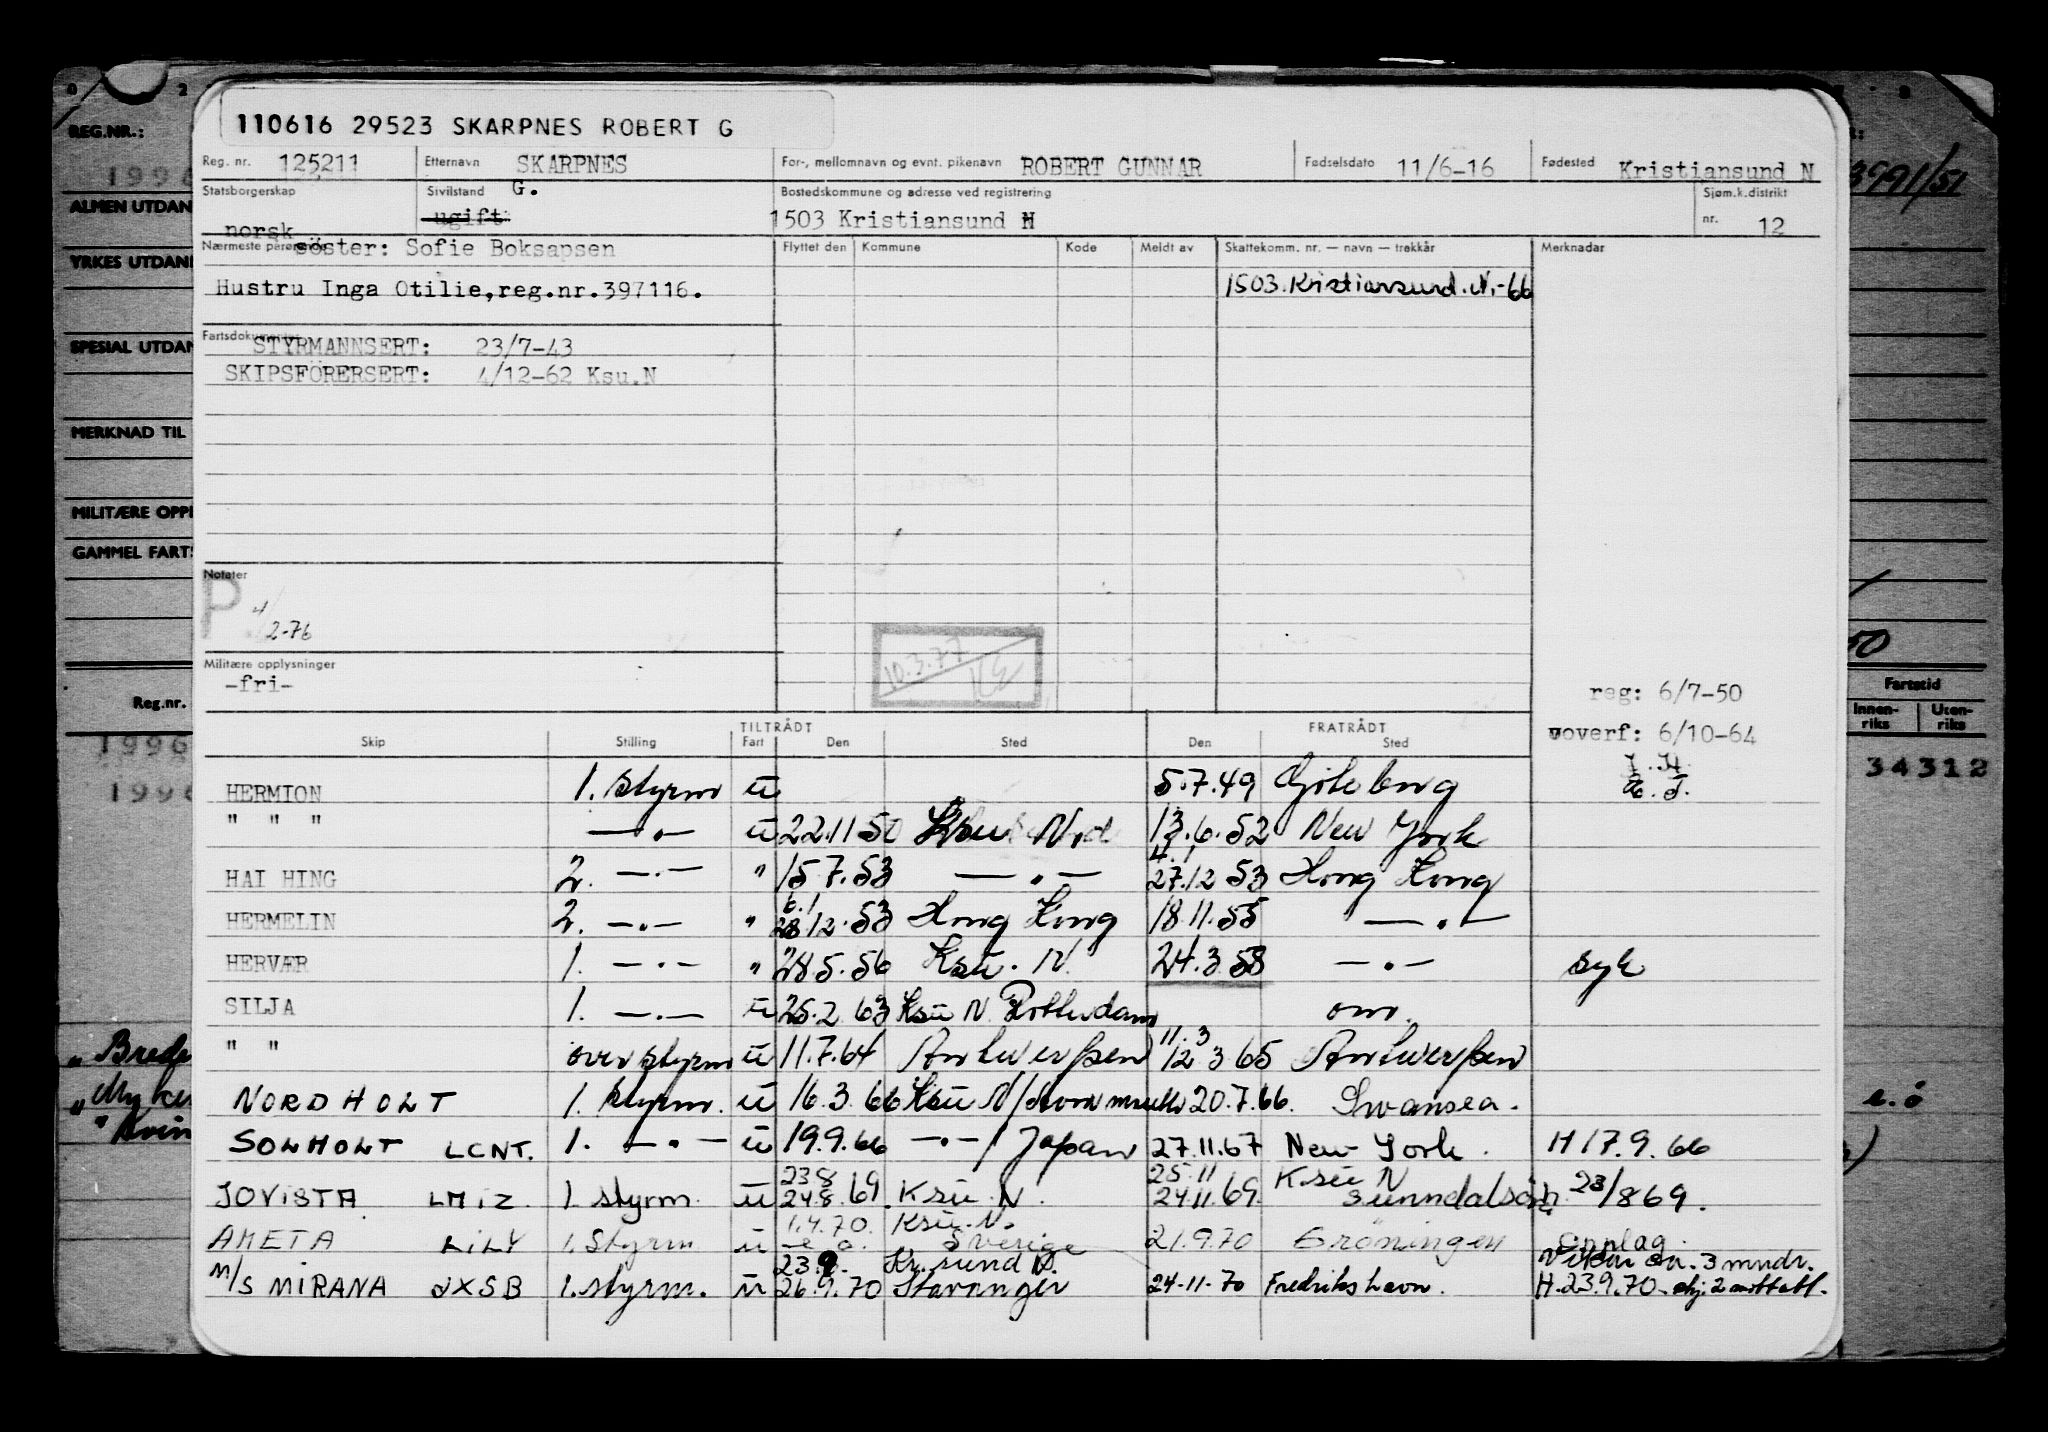 110616 29523 SKARPNES ROBERT G
Reg. nr. 125211 Etternavn SKARPNES For-, mellomnavn og evnt. pikenavn ROBERT GUNNAR Fødselsdato 11/6-16 Fødested Kristiansund N
Statsborgerskap norsk Sivilstand ugift G. Bostedskommune og adresse ved registrering 1503 Kristiansund N Sjøm.k.distrikt nr. 12
Nærmeste pårørende söster: Sofie Boksapsen Flyttet den Kommune Kode Meldt av Skattekomm. nr. — navn — trekkår Merknadar
Hustru Inga Otilie,reg.nr.397116. 1503.Kristiansund.N.-66
Fartsdokumenter STYRMANNSERT: 23/7-43
SKIPSFÖRERSERT: 4/12-62 Ksu.N
Notater
P 4/2-76
10.3.77
Militære opplysninger
-fri-
reg: 6/7-50
overf: 6/10-64
TILTRÅDT FRATRÅDT
Skip Stilling Fart Den Sted Den Sted
HERMION 1. styrm u 5.7.49 Göteborg
" " " —"— u 22.11 50 Ksu N. 13.6.52 New York
HAI HING 2. —"— " 15 7.53 —"— 4.1 27.12 53 Hong Kong
HERMELIN 2. —"— " 6.1 28.12.53 Hong Kong 18.11.55 —"—
HERVÆR 1. —"— " 28.5.56 Ksu. N. 24.3.58 —"— syk
SILJA 1. —"— u 25.2.63 Ksu N. Rotterdam omr.
" " overstyrm u 11.7.64 Antwerpen 11.3 12.3.65 Antwerpen
NORDHOLT 1. styrm. u 16.3.66 Ksu N/ 20.7.66. Swansea.
SOLHOLT LCNT. 1. —"— u 19.9.66 —"—/Japan 27.11.67 New York. H 17.9.66
JOVISTA LMIZ 1. styrm u 23 8 24.8.69. Ksu N. 25.11 24.11.69. Ksu N Sunndalsöra 23/869.
AMETA LILY 1. Styrm u 1.4.70. Ksu. N. Sverige 21.9.70 Gröningen Opplag.
M/S MIRANA LXSB 1. styrm. u 23.9. 26.9.70 Kr.sund N. Stavanger 24.11.70 Fredrikshavn. Vikar ca. 3 mndr. H.23.9.70.
REG.NR.:
1996
ALMEN UTDAN
YRKES UTDAN
SPESIAL UTDAN
MERKNAD TIL
MILITÆRE OPP
GAMMEL FART
Reg.nr.
1996
1996
3991/51
50
Fartstid
Innenriks Utenriks
34312